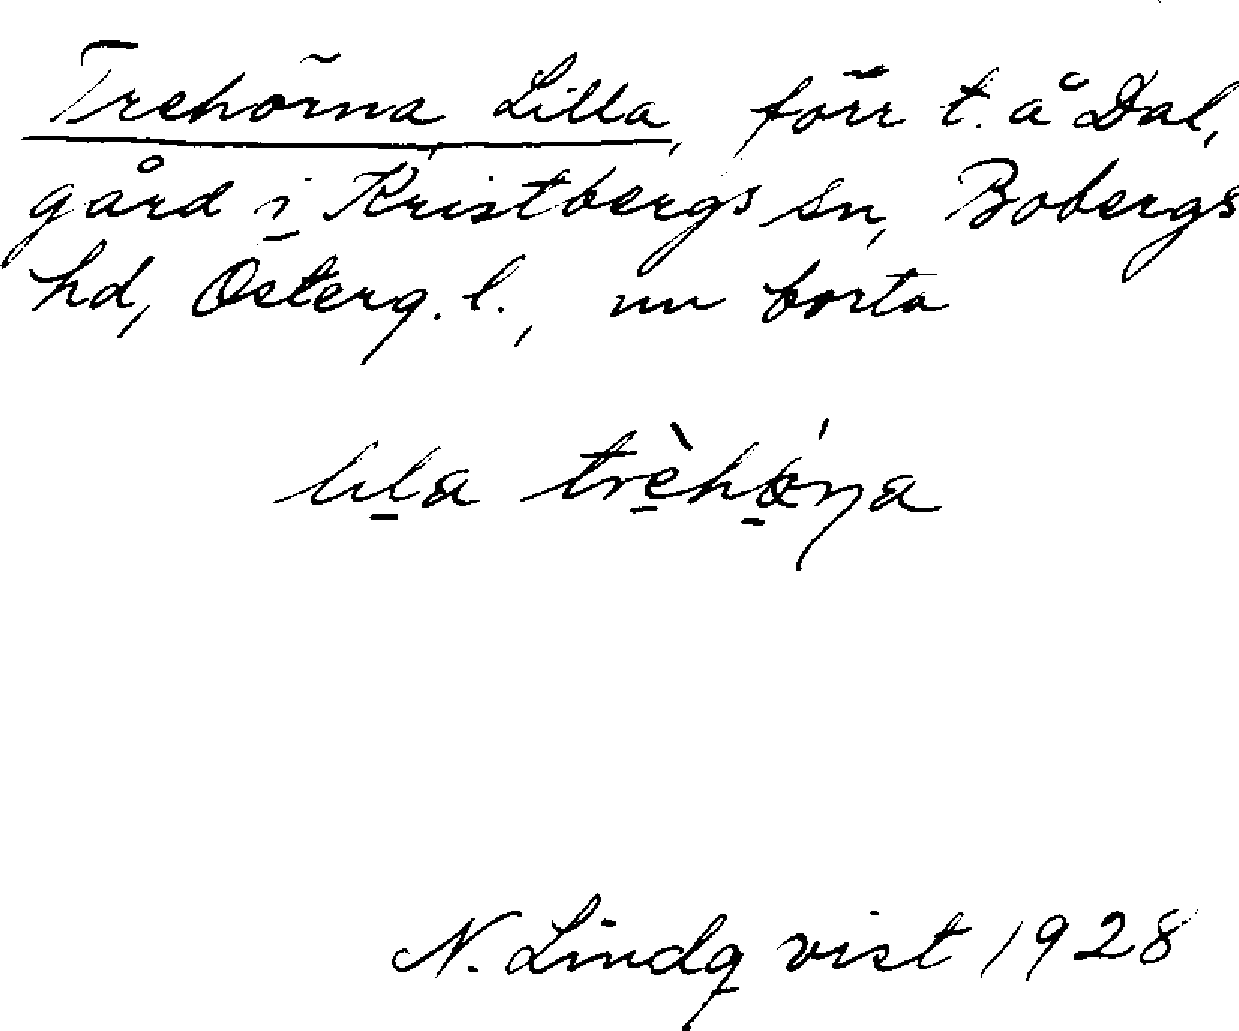 Trehörna Lilla, förr t. å Dal,
gård i Kristbergs sn, Bobergs
hd, Österg. l., nu borta
lịla trẹ̀hǿ̣ɳa
N. Lindqvist 1928